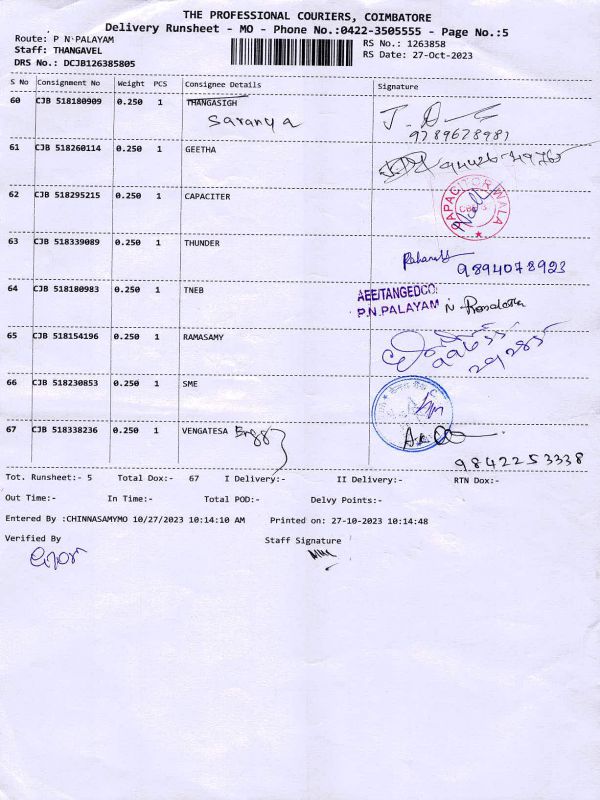 THE PROFESSIONAL COURIERS, COIMBATORE
Delivery Runsheet - MO - Phone No.:0422-3505555 - Page No.:5
Route: P N PALAYAM
RS No.: 1263858
Staff: THANGAVEL
RS Date: 27-Oct-2023
DRS No.: DCJB126385805
S No Consignment No Weight PCS Consignee Details Signature
60 CJB 518180909 0.250 1 THANGASIGH
Saranya
9789678981
61 CJB 518260114 0.250 1 GEETHA
62 CJB 518295215 0.250 1 CAPACITER
CAPACITOR WALA
63 CJB 518339089 0.250 1 THUNDER
9894078923
64 CJB 518180983 0.250 1 TNEB
AEE/TANGEDCO
P.N.PALAYAM
65 CJB 518154196 0.250 1 RAMASAMY
66 CJB 518230853 0.250 1 SME
67 CJB 518338236 0.250 1 VENGATESA Engg
9842253338
Tot. Runsheet:- 5 Total Dox:- 67 I Delivery:- II Delivery:- RTN Dox:-
Out Time:- In Time:- Total POD:- Delvy Points:-
Entered By :CHINNASAMYMO 10/27/2023 10:14:10 AM Printed on: 27-10-2023 10:14:48
Verified By Staff Signature